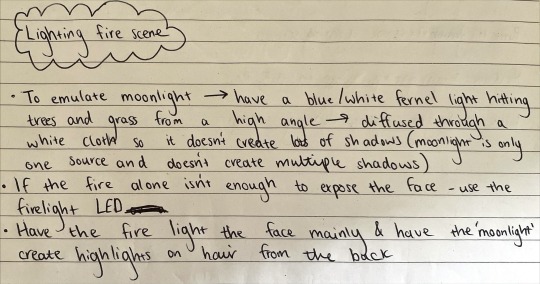 Lighting fire scene
• To emulate moonlight → have a blue/white fernel light hitting
trees and grass from a high angle → diffused through a
white cloth so it doesn't create lots of shadows (moonlight is only
one source and doesn't create multiple shadows)
• If the fire alone isn't enough to expose the face - use the
firelight LED
• Have the fire light the face mainly & have the 'moonlight'
create highlights on hair from the back